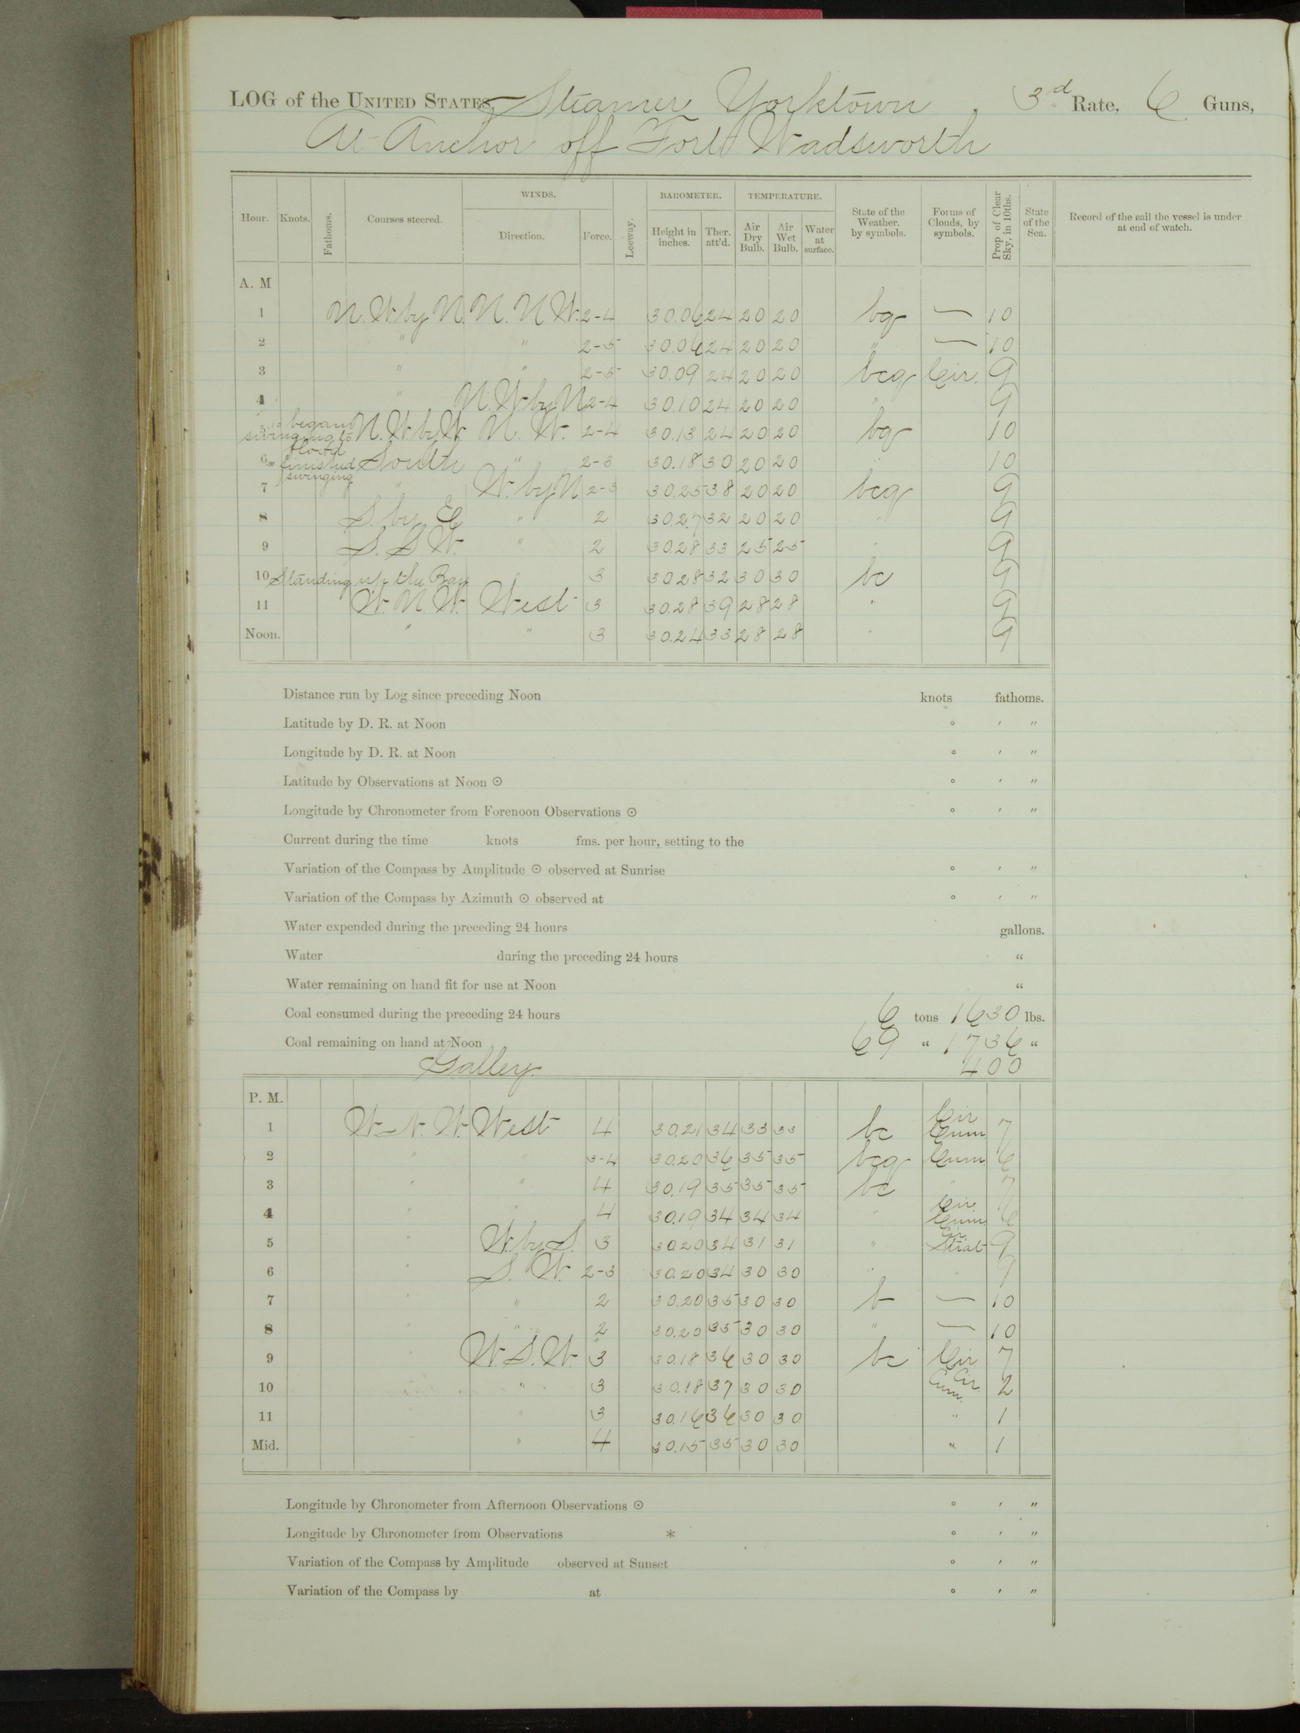 LOG of the UNITED STATES Steamer Yorktown, 3rd Rate, 6 Guns,
At Anchor off Fort Wadsworth
Hour. Knots. Fathoms. Courses steered. WINDS. Direction. Force. Leeway. BAROMETER. Height in inches. Ther. att'd. TEMPERATURE. Air Dry Bulb. Air Wet Bulb. Water at surface. State of the Weather. by symbols. Forms of Clouds, by symbols. Prop. of Clear Sky, in 10ths. State of the Sea. Record of the sail the vessel is under at end of watch.
A. M
1 N. W by N. N. N W. 2-4 30.06 24 20 20 bq — 10
2 " " 2-5 30.06 24 20 20 " — 10
3 " " 2-5 30.09 24 20 20 bcq Cir. 9
4 " N. W by N 2-4 30.10 24 20 20 " 9
began swinging to flood N. W by W N. W. 2-4 30.13 24 20 20 bq 10
6 finished swinging South " 2-3 30.18 30 20 20 " 10
7 " W. by N 2-3 30.25 38 20 20 bcq 9
8 S. by E " 2 30.27 32 20 20 " 9
9 S. S W. " 2 30.28 33 25 25 " 9
10 Standing up the Bay " 3 30.28 32 30 30 bc 9
11 W. N. W. West 3 30.28 39 28 28 " 9
Noon. " " 3 30.24 33 28 28 " 9
Distance run by Log since preceding Noon knots fathoms.
Latitude by D. R. at Noon ° ' "
Longitude by D. R. at Noon ° ' "
Latitude by Observations at Noon ⊙ ° ' "
Longitude by Chronometer from Forenoon Observations ⊙ ° ' "
Current during the time knots fms. per hour, setting to the
Variation of the Compass by Amplitude ⊙ observed at Sunrise ° ' "
Variation of the Compass by Azimuth ⊙ observed at ° ' "
Water expended during the preceding 24 hours gallons.
Water during the preceding 24 hours "
Water remaining on hand fit for use at Noon "
Coal consumed during the preceding 24 hours 6 tons 1630 lbs.
Coal remaining on hand at Noon 69 " 1736 "
Galley 400
P. M.
1 W. N. W. West 4 30.21 34 33 33 bc Cir Cum 7
2 " " 3-4 30.20 36 35 35 bcq Cum 6
3 " " 4 30.19 35 35 35 bc " 7
4 " " 4 30.19 34 34 34 " Cir Cum 6
5 " W by S. 3 30.20 34 31 31 " Cir Strat 9
6 " S. W. 2-3 30.20 34 30 30 " " 9
7 " " 2 30.20 35 30 30 b — 10
8 " " 2 30.20 35 30 30 " — 10
9 " W. S. W. 3 30.18 36 30 30 bc Cir 7
10 " 3 30.18 37 30 30 Cir Cum. 2
11 " 3 30.16 36 30 30 " 1
Mid. " 4 30.15 35 30 30 " 1
Longitude by Chronometer from Afternoon Observations ⊙ ° ' "
Longitude by Chronometer from Observations * ° ' "
Variation of the Compass by Amplitude observed at Sunset ° ' "
Variation of the Compass by at ° ' "